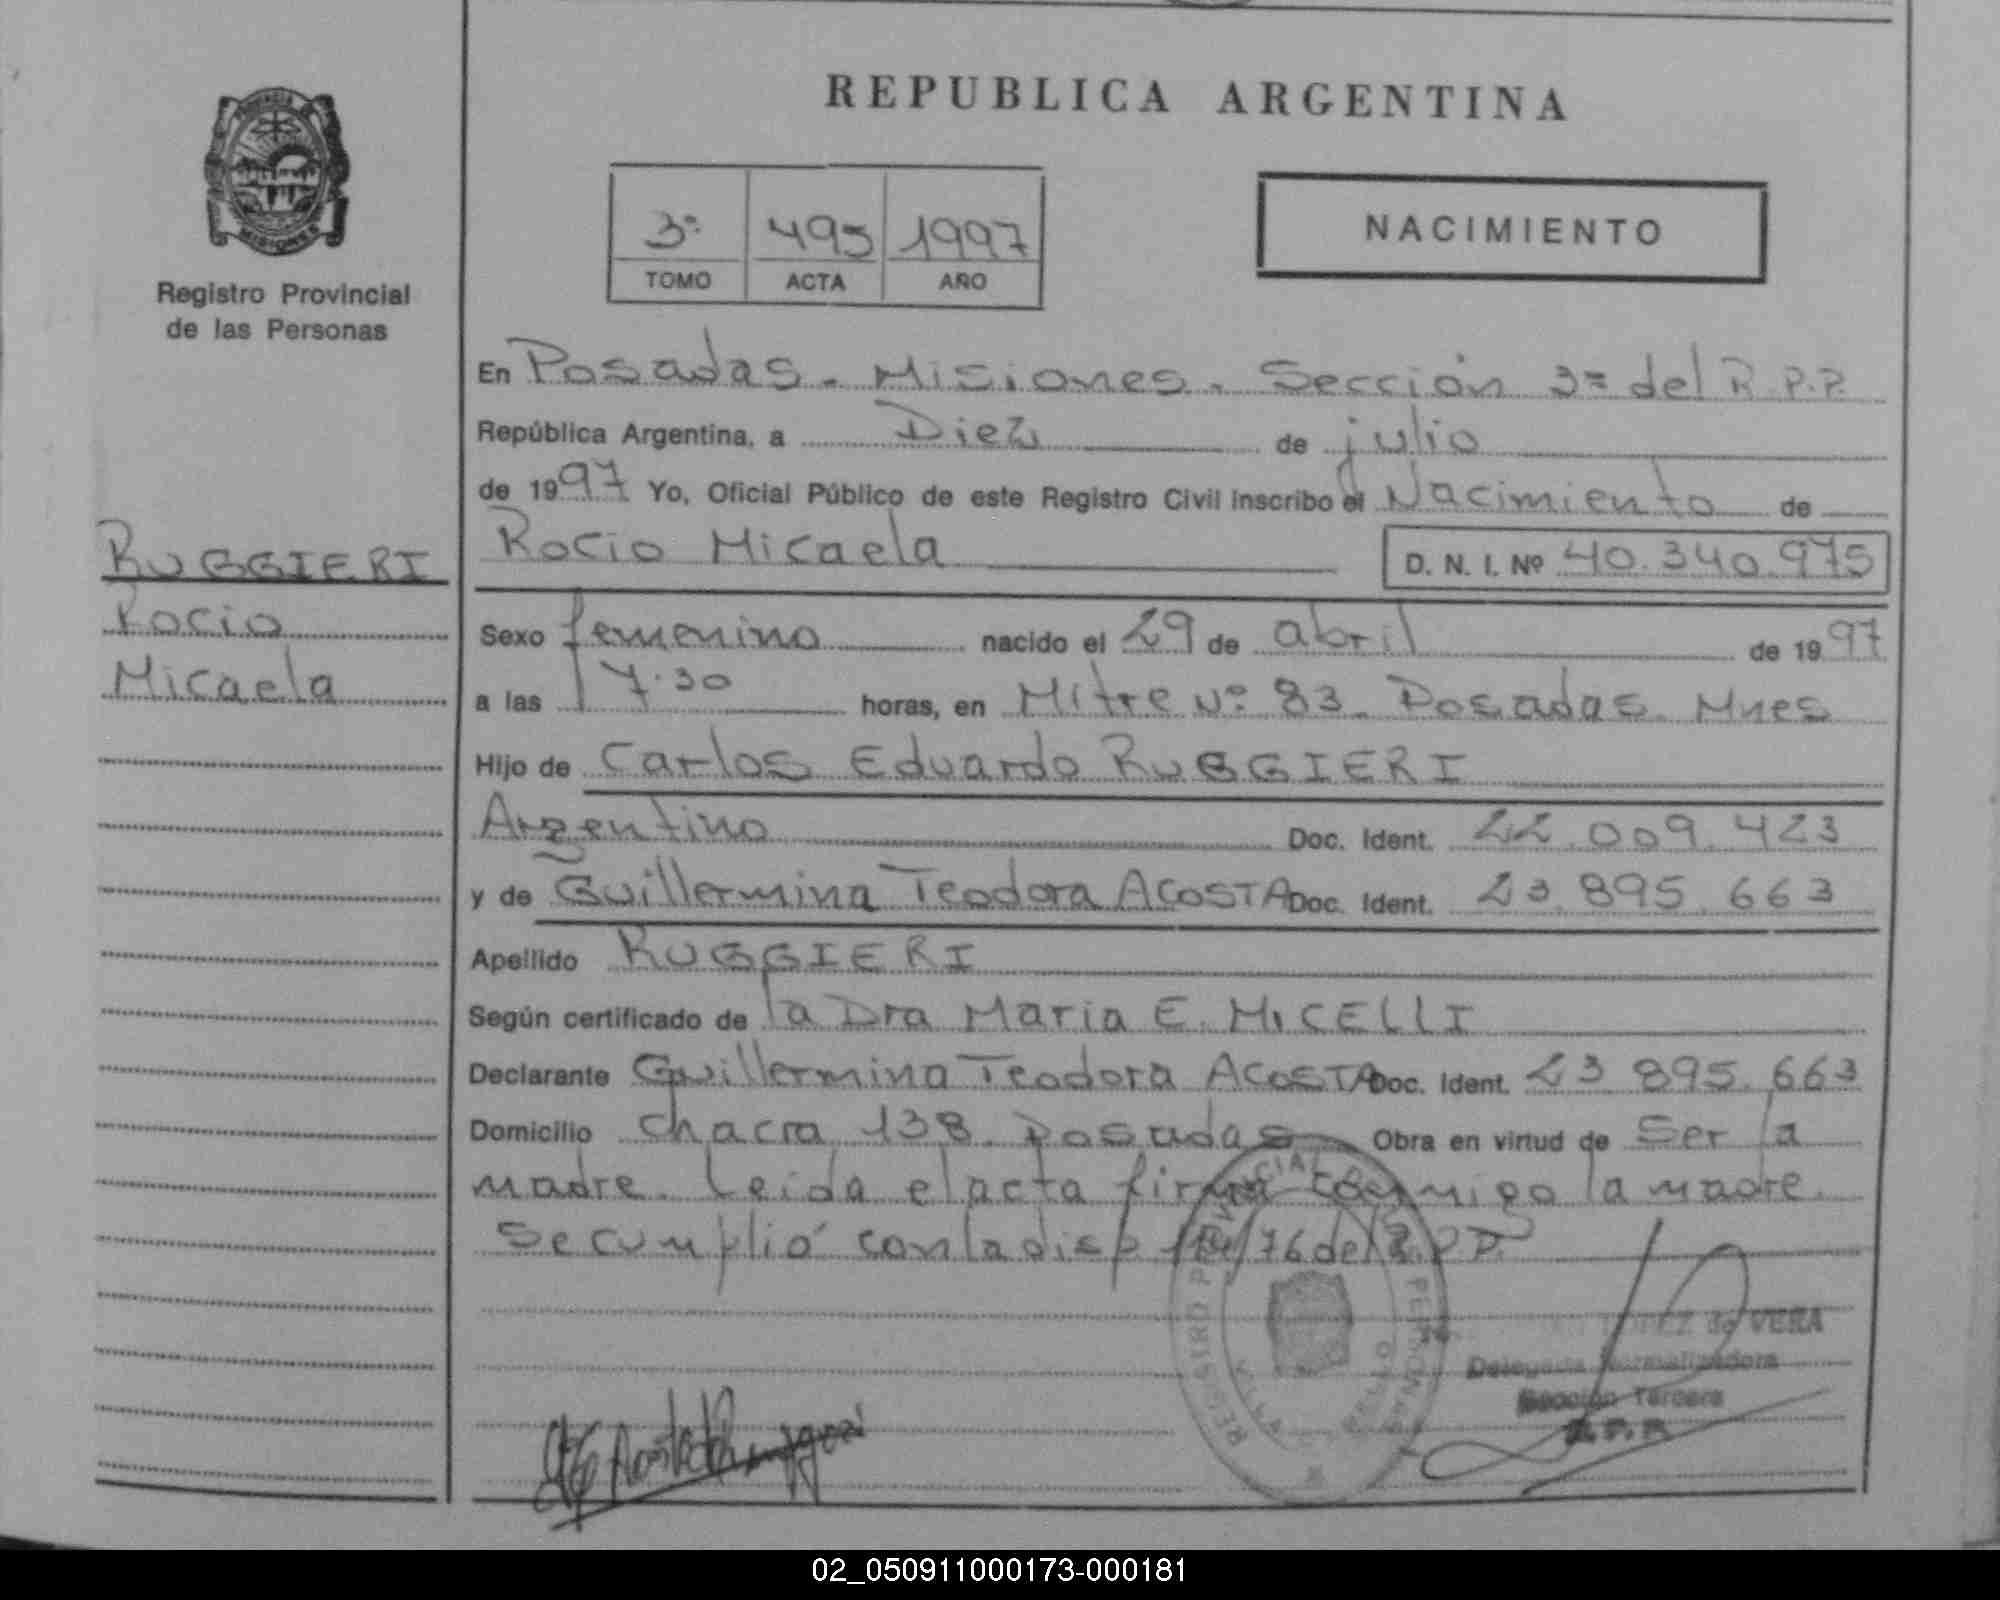 REPUBLICA ARGENTINA
MISIONES
Registro Provincial
de las Personas
3º 495 1997
TOMO ACTA AÑO
NACIMIENTO
RUGGIERI
Rocio
Micaela
En Posadas - Misiones - Sección 3ª del R.P.P.
República Argentina, a Diez de julio
de 1997 Yo, Oficial Público de este Registro Civil Inscribo el Nacimiento de
Rocio Micaela D. N. I. Nº 40.340.975
Sexo femenino nacido el 29 de abril de 1997
a las 17.30 horas, en Mitre Nº 83 Posadas Mnes
Hijo de Carlos Eduardo RUGGIERI
Argentino Doc. Ident. 22.009.423
y de Guillermina Teodora ACOSTA Doc. Ident. 23.895.663
Apellido RUGGIERI
Según certificado de la Dra Maria E. MICELLI
Declarante Guillermina Teodora ACOSTA Doc. Ident. 23 895.663
Domicilio Chacra 138 Posadas Obra en virtud de Ser la
madre. Leida el acta firma conmigo la madre.
Se cumplió con la disp /76 del R.P.P.
REGISTRO PROVINCIAL PERSONAS
de VERA
Delegada Normalizadora
Sección Tercera
R.P.P.
02_050911000173-000181